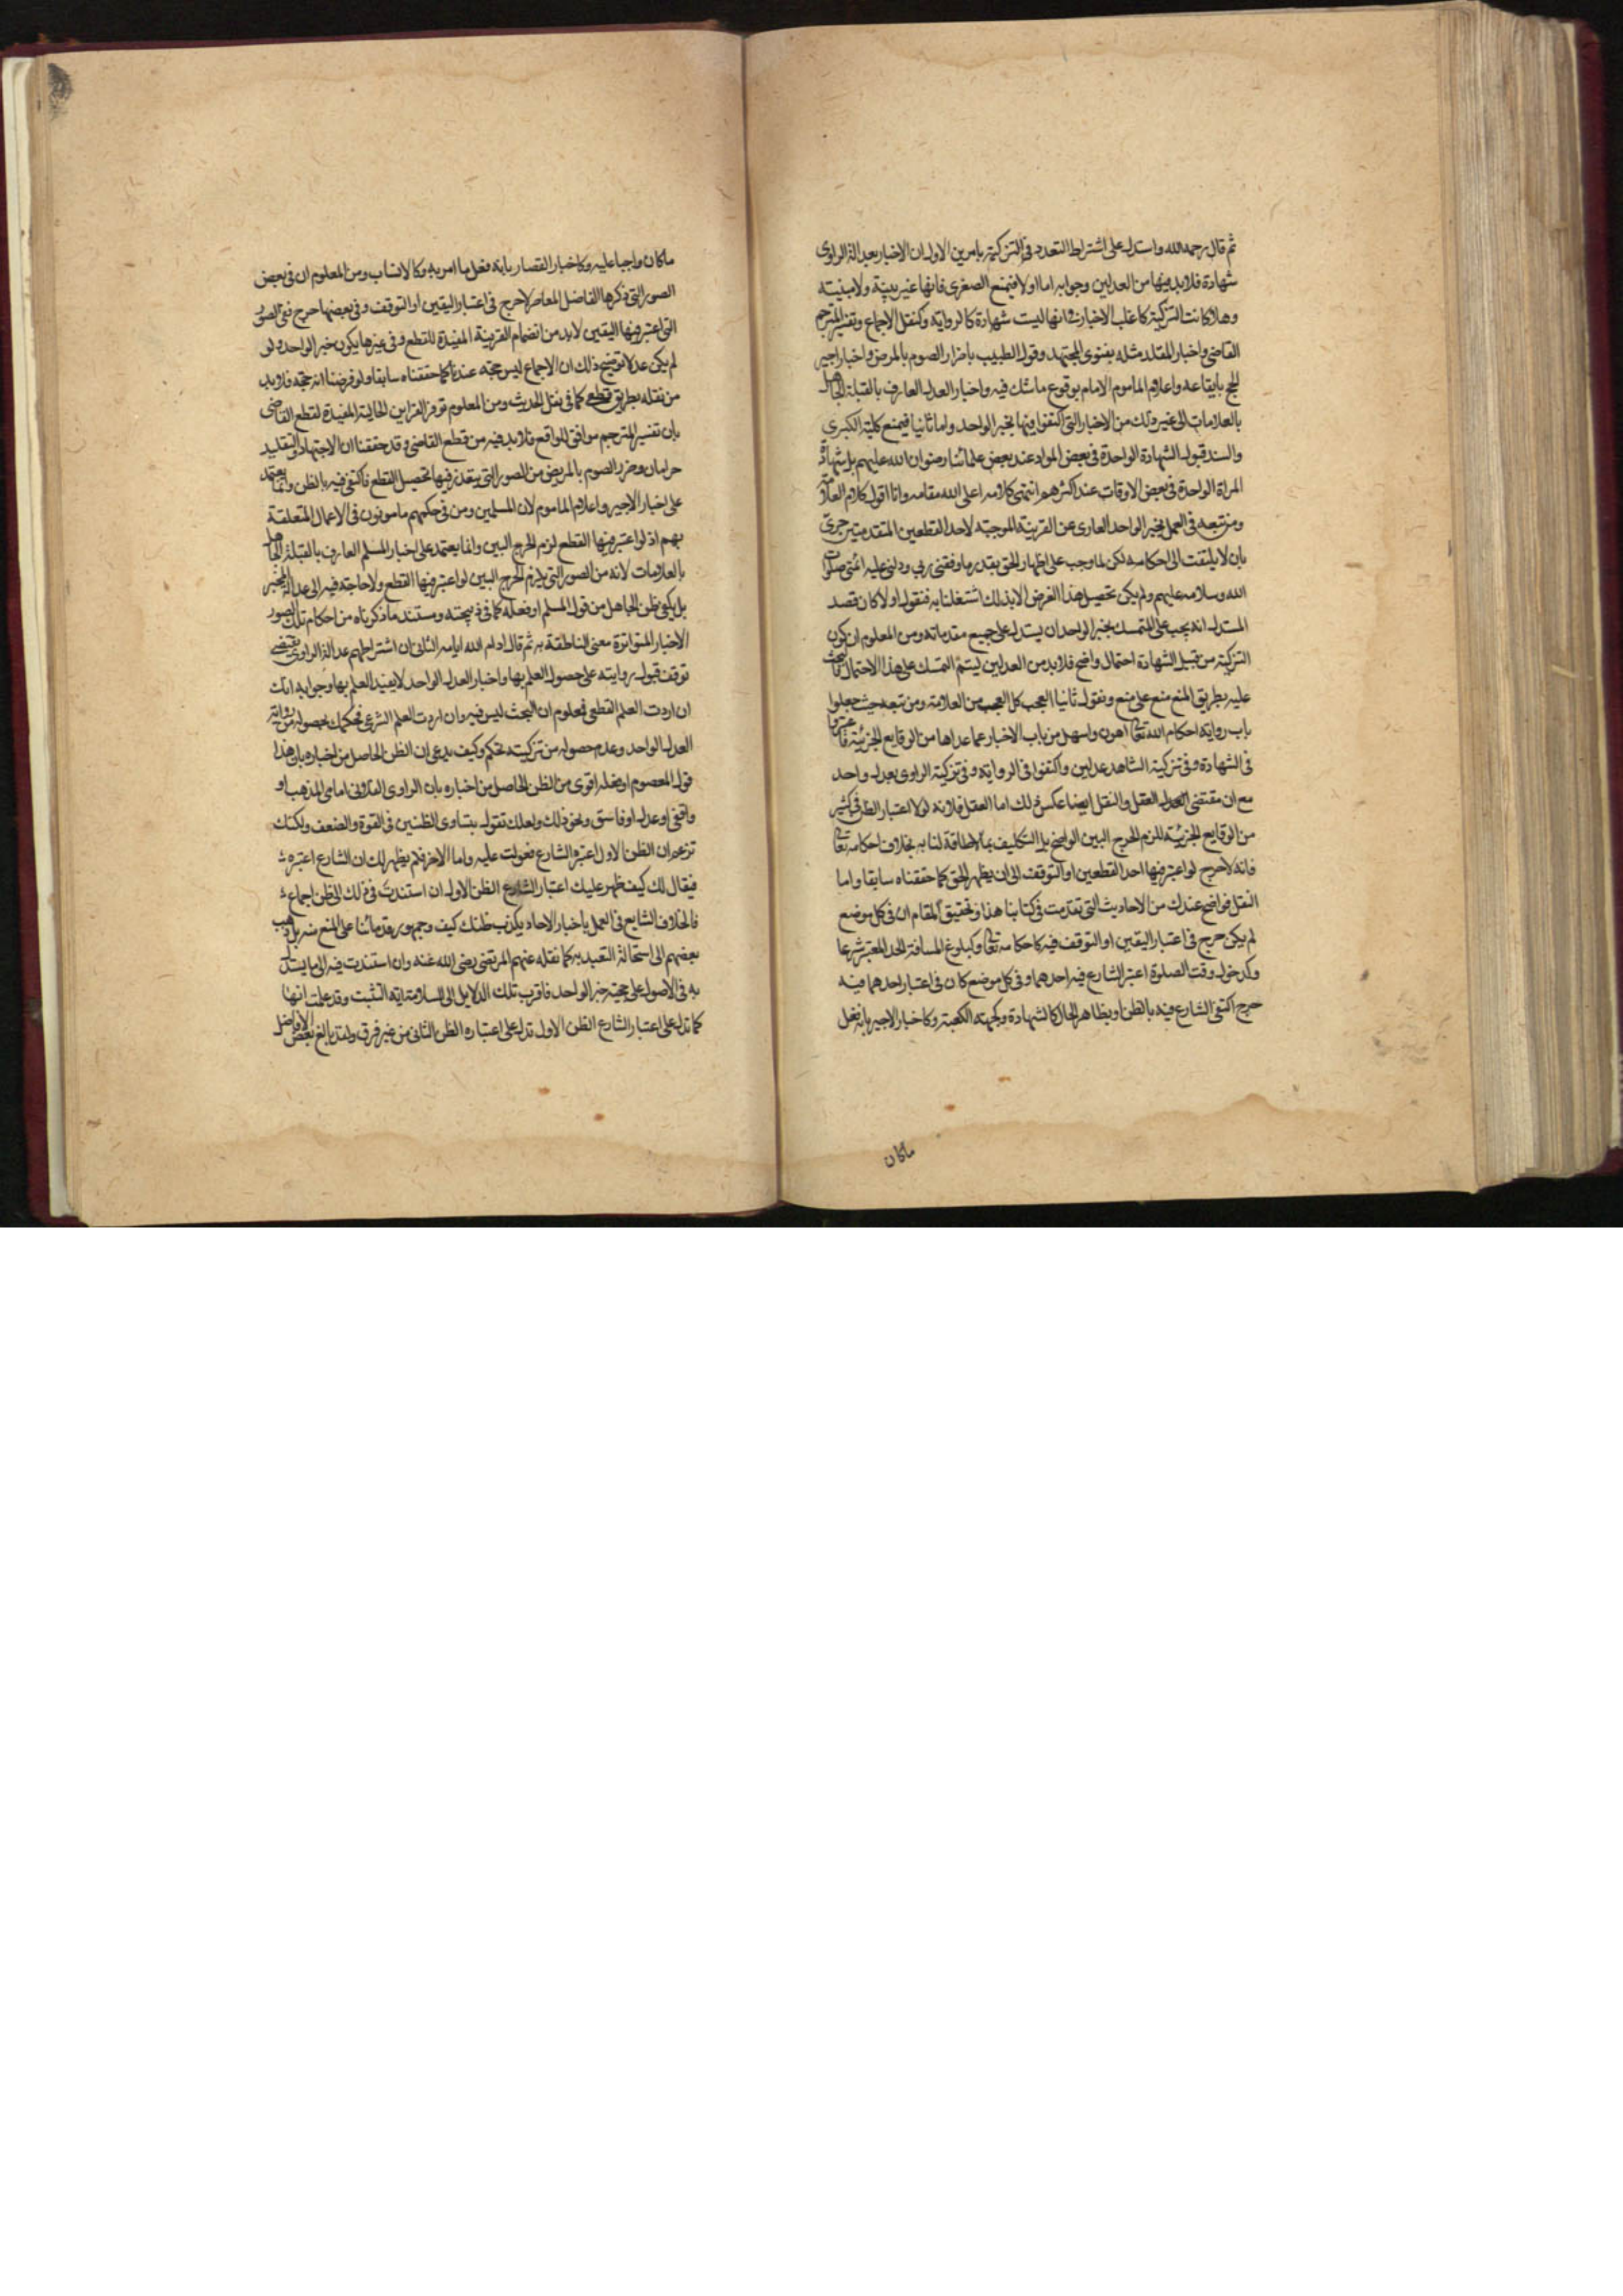 ثم قال رحمه الله واستدل على اشتراط التعدد في التزكية بامرين الاول ان الاخبار بعدالة الراوى
شهادة فلا بد فيها من العدلين وجوابه اما اولا فيمنع الصغرى فانها غير بينة ولا مبنيته
وهلا كانت التزكية كاغلب الاخبار في انها ليست شهادة كالرواية وكنقل الاجماع وتفسير المترجم
القاضي واخبار المقلد مثله بفتوى المجتهد وقول الطبيب باضرار الصوم بالمرض واخبار اجير
الحج بايقاعه واعلام الماموم الامام بوقوع ما شك فيه واخبار العدل العارف بالقبلة الجاهل
بالعلامات الى غير ذلك من الاخبار التي اكتفوا فيها بخبر الواحد واما ثانيا فيمنع كلية الكبرى
والسند قبول الشهادة الواحدة في بعض المواد عند بعض علمائنا رضوان الله عليهم بل شهادة
المراة الواحدة في بعض الاوقات عند اكثرهم انتهى كلامه اعلى الله مقامه وانا اقول كلام العلامة
ومن تبعه في العمل بخبر الواحد العارى عن القرينة الموجبة لاحد القطعين المتقدمين حرى
بان لا يلتفت الى احكامه لكن لما وجب على اظهار الحق بقدر ما وفقني ربي ودلني عليه ائمتي صلوات
الله وسلامه عليهم ولم يكن تحصيل هذا الغرض الا بذلك اشتغلنا به فنقول اولا كان قصد
المستدل انه يجب على المتمسك بخبر الواحد ان يستدل على جميع مقدماته ومن المعلوم ان كون
التزكية من قبيل الشهادة احتمال واضح فلا بد من العدلين ليتم التمسك على هذا الاحتمال فالبحث
عليه بطريق المنع منع على منع ونقول ثانيا العجب كل العجب من العلامة ومن تبعه حيث جعلوا
باب رواية احكام الله تعالى اهون واسهل من باب الاخبار عما عداها من الوقايع الجزئية فاعتبروا
في الشهادة وفي تزكية الشاهد عدلين واكتفوا في الرواية وفي تزكية الراوى بعدل واحد
مع ان مقتضى العقل والنقل ايضا عكس ذلك اما العقل فلانه لولا اعتبار الظن في كثير
من الوقايع الجزئية للزم الحرج البين الواضح بل التكليف بما لا طاقة لنا به بخلاف احكامه تعالى
فانه لا حرج لو اعتبر فيها احد القطعين او التوقف الى ان يظهر الحق كما حققناه سابقا واما
النقل فواضح عندك من الاحاديث التي تقدمت في كتابنا هذا وتحقيق المقام ان في كل موضع
لم يكن حرج في اعتبار اليقين او التوقف فيه كاحكامه تعالى وكبلوغ المسافة الحد المعتبر شرعا
وكدخول وقت الصلوة اعتبر الشارع فيه احدهما وفي كل موضع كان في اعتبار احدهما فيه
حرج اكتفى الشارع فيه بالظن او بظاهر الحال كالشهادة وكجهة الكعبة وكاخبار الاجير بانه فعل
ماكان
ماكان واجبا عليه وكاخبار القصار بانه فعل ما امر به وكالانساب ومن المعلوم ان في بعض
الصور التي ذكرها الفاضل المعاصر لا حرج في اعتبار اليقين او التوقف وفي بعضها حرج ففي الصور
التي اعتبر فيها اليقين لا بد من انضمام القرينة المفيدة للقطع وفي غيرها يكون خبر الواحد ولو
لم يكن عدلا توضيح ذلك ان الاجماع ليس حجة عندنا كما حققناه سابقا ولو فرضنا انه حجة فلا بد
من نقله بطريق قطعي كما في نقل الحديث ومن المعلوم توفر القراين الحالية المفيدة لقطع القاضي
بان تفسير المترجم موافق للواقع فلا بد فيه من قطع القاضي وقد حققنا ان الاجتهاد والتقليد
حرامان وضرر الصوم بالمريض من الصور التي يتعذر فيها تحصيل القطع فاكتفى فيه بالظن وانما يعتمد
على اخبار الاجير واعلام الماموم لان المسلمين ومن في حكمهم مامونون في الاعمال المتعلقة
بهم اذ لو اعتبر فيها القطع لزم الحرج البين وانما يعتمد على اخبار المسلم العارف بالقبلة الجاهل
بالعلامات لانه من الصور التي يلزم الحرج البين لو اعتبر فيها القطع ولا حاجة فيه الى عدالة المخبر
بل يكفي ظن الجاهل من قول المسلم او فعله كما في ذبيحته ومستند ما ذكرناه من احكام تلك الصور
الاخبار المتواترة معنى الناطقة به ثم قال ادام الله ايامه الثاني ان اشتراطهم عدالة الراوى يقتضي
توقف قبول روايته على حصول العلم بها واخبار العدل الواحد لا يفيد العلم بها وجوابه انك
ان اردت العلم القطعي فمعلوم ان البحث ليس فيه وان اردت العلم الشرعي فحكمك بحصوله من رواية
العدل الواحد وعدم حصوله من تزكيته تحكم وكيف يدعى ان الظن الحاصل من اخباره بان هذا
قول المعصوم او فعله اقوى من الظن الحاصل من اخباره بان الراوى الفلاني امامي المذهب او
واقفي او عدل او فاسق ونحو ذلك ولعلك تقول بتساوى الظنين في القوة والضعف ولكنك
تزعم ان الظن الاول اعتبره الشارع فعولت عليه واما الاخر فلم يظهر لك ان الشارع اعتبره
فيقال لك كيف ظهر عليك اعتبار الشارع الظن الاول ان استندت في ذلك الى ظن اجماع
فالخلاف الشايع في العمل باخبار الاحاد يكذب ظنك كيف وجمهور قدمائنا على المنع منه بل ذهب
بعضهم الى استحالة التعبد به كما نقله عنهم المرتضى رضى الله عنه وان استندت فيه الى ما يستدل
به في الاصول على حجية خبر الواحد فاقرب تلك الدلايل الى السلامة اية التثبت وقد علمت انها
كما تدل على اعتبار الشارع الظن الاول تدل على اعتباره الظن الثاني من غير فرق ولقد بالغ بعض الافاضل